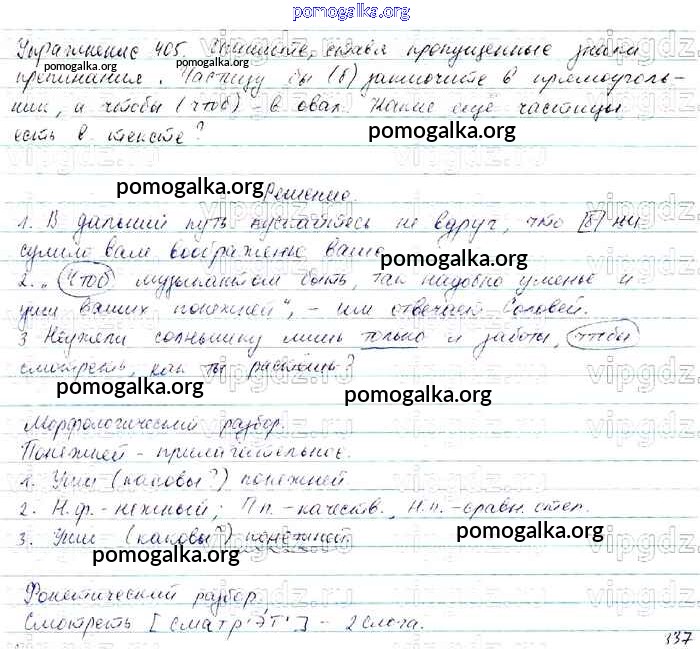 pomogalka.org
Упражнение 405. Спишите, ставя пропущенные знаки
препинания. Частицу бы (б) заключите в прямоуголь-
ник, а чтобы (чтоб) - в овал. Какие ещё частицы
есть в тексте?
pomogalka.org
pomogalka.org
Решение.
1. В дальний путь пускайтесь не вдруг, что [б] ни
сулило вам воображенье ваше.
pomogalka.org
2. „Чтоб музыкантом быть, так надобно уменье и
уши ваших понежней", - им отвечает Соловей.
3 Неужели солнышку лишь только и заботы, чтобы
смотреть, как ты растёшь?
pomogalka.org
pomogalka.org
Морфологический разбор.
Понежней - прилагательное.
1. Уши (каковы?) понежней.
2. Н.ф.-нежный; П.п.-качеств., Н.п.-сравн. степ.
3. Уши (каковы?) понежней.
pomogalka.org
pomogalka.org
Фонетический разбор.
Смотреть [сматр'эт'] - 2 слога.
337
vipgdz.ru